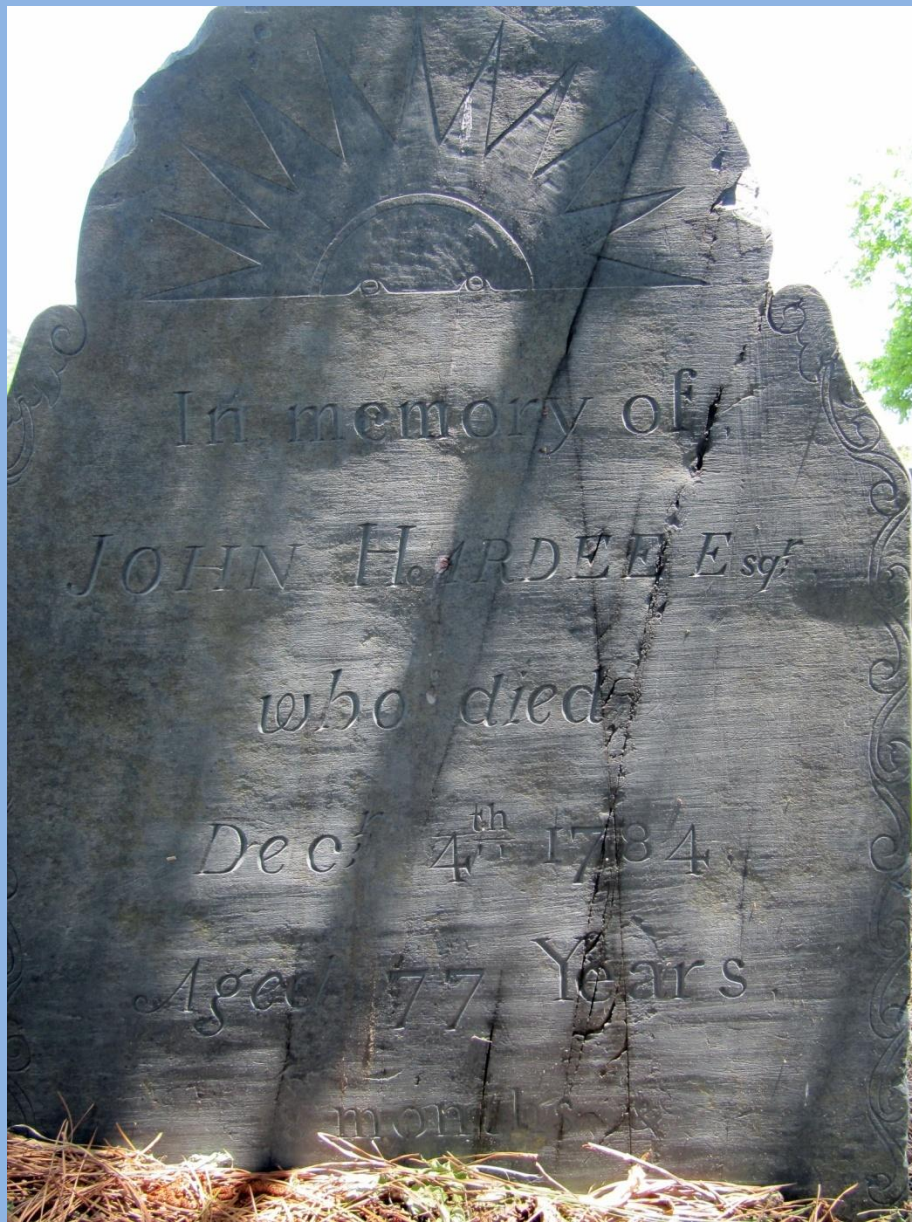 In memory of
JOHN HARDEE Esqr.
who died
Decr 4th 1784.
Aged 77 Years,
months &